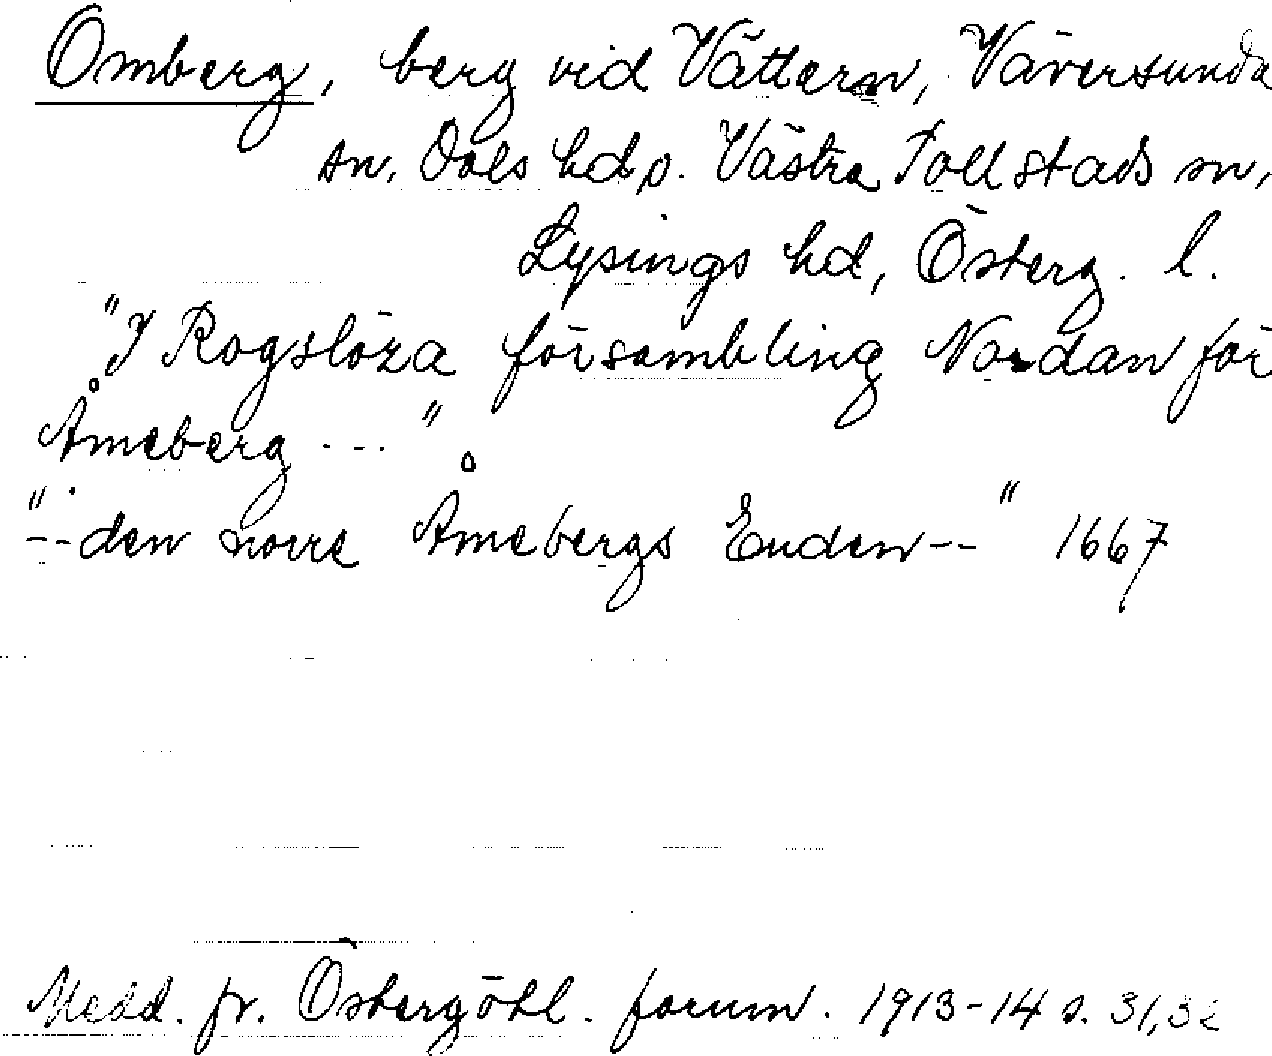 Omberg, berg vid Vättern, Väversunda
sn, Dals hd o. Västra Tollstads sn,
Lysings hd, Österg. l.
"I Rogslösa försambling Nordan för
Åmeberg ---"
"--den norre Åmebergs Enden--" 1667
Medd. fr. Östergötl. fornm. 1913-14 s. 31,32